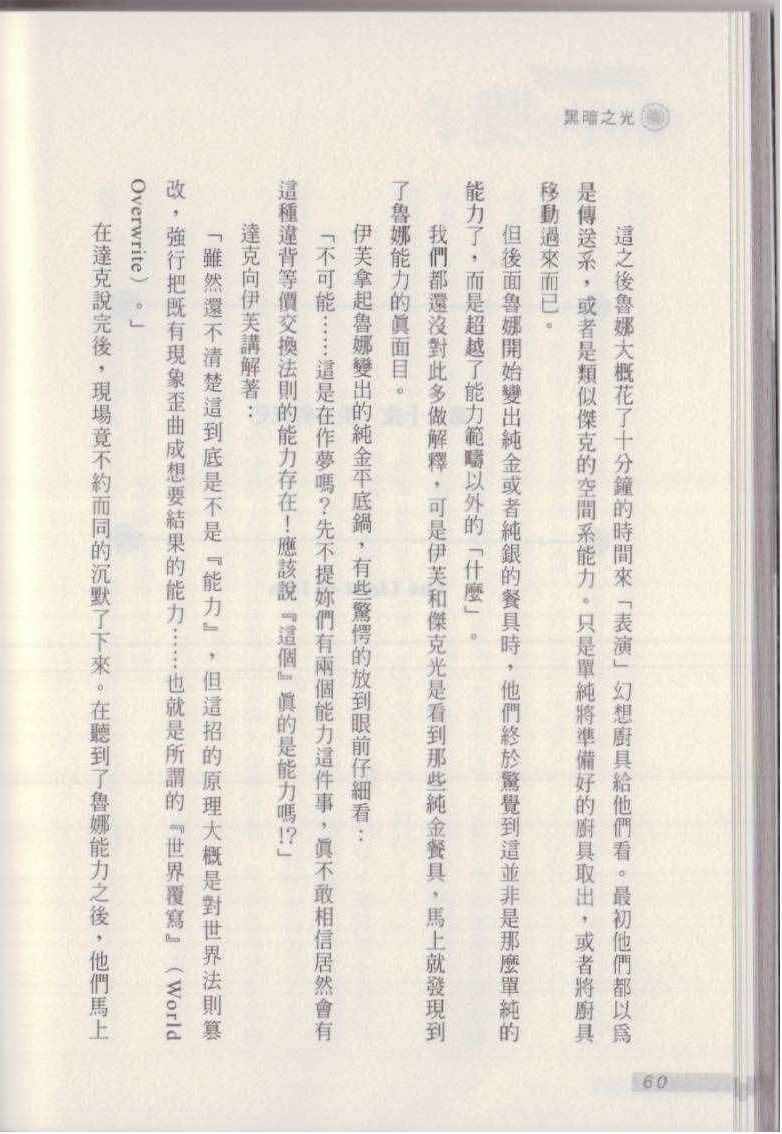 黑暗之光
這之後魯娜大概花了十分鐘的時間來「表演」幻想廚具給他們看。最初他們都以爲
是傳送系，或者是類似傑克的空間系能力。只是單純將準備好的廚具取出，或者將廚具
移動過來而已。
但後面魯娜開始變出純金或者純銀的餐具時，他們終於驚覺到這並非是那麼單純的
能力了，而是超越了能力範疇以外的「什麼」。
我們都還沒對此多做解釋，可是伊芙和傑克光是看到那些純金餐具，馬上就發現到
了魯娜能力的眞面目。
伊芙拿起魯娜變出的純金平底鍋，有些驚愕的放到眼前仔細看：
「不可能……這是在作夢嗎？先不提妳們有兩個能力這件事，眞不敢相信居然會有
這種違背等價交換法則的能力存在！應該說『這個』眞的是能力嗎!?」
達克向伊芙講解著：
「雖然還不清楚這到底是不是『能力』，但這招的原理大概是對世界法則篡
改，強行把既有現象歪曲成想要結果的能力……也就是所謂的『世界覆寫』（World
Overwrite）。」
在達克說完後，現場竟不約而同的沉默了下來。在聽到了魯娜能力之後，他們馬上
60